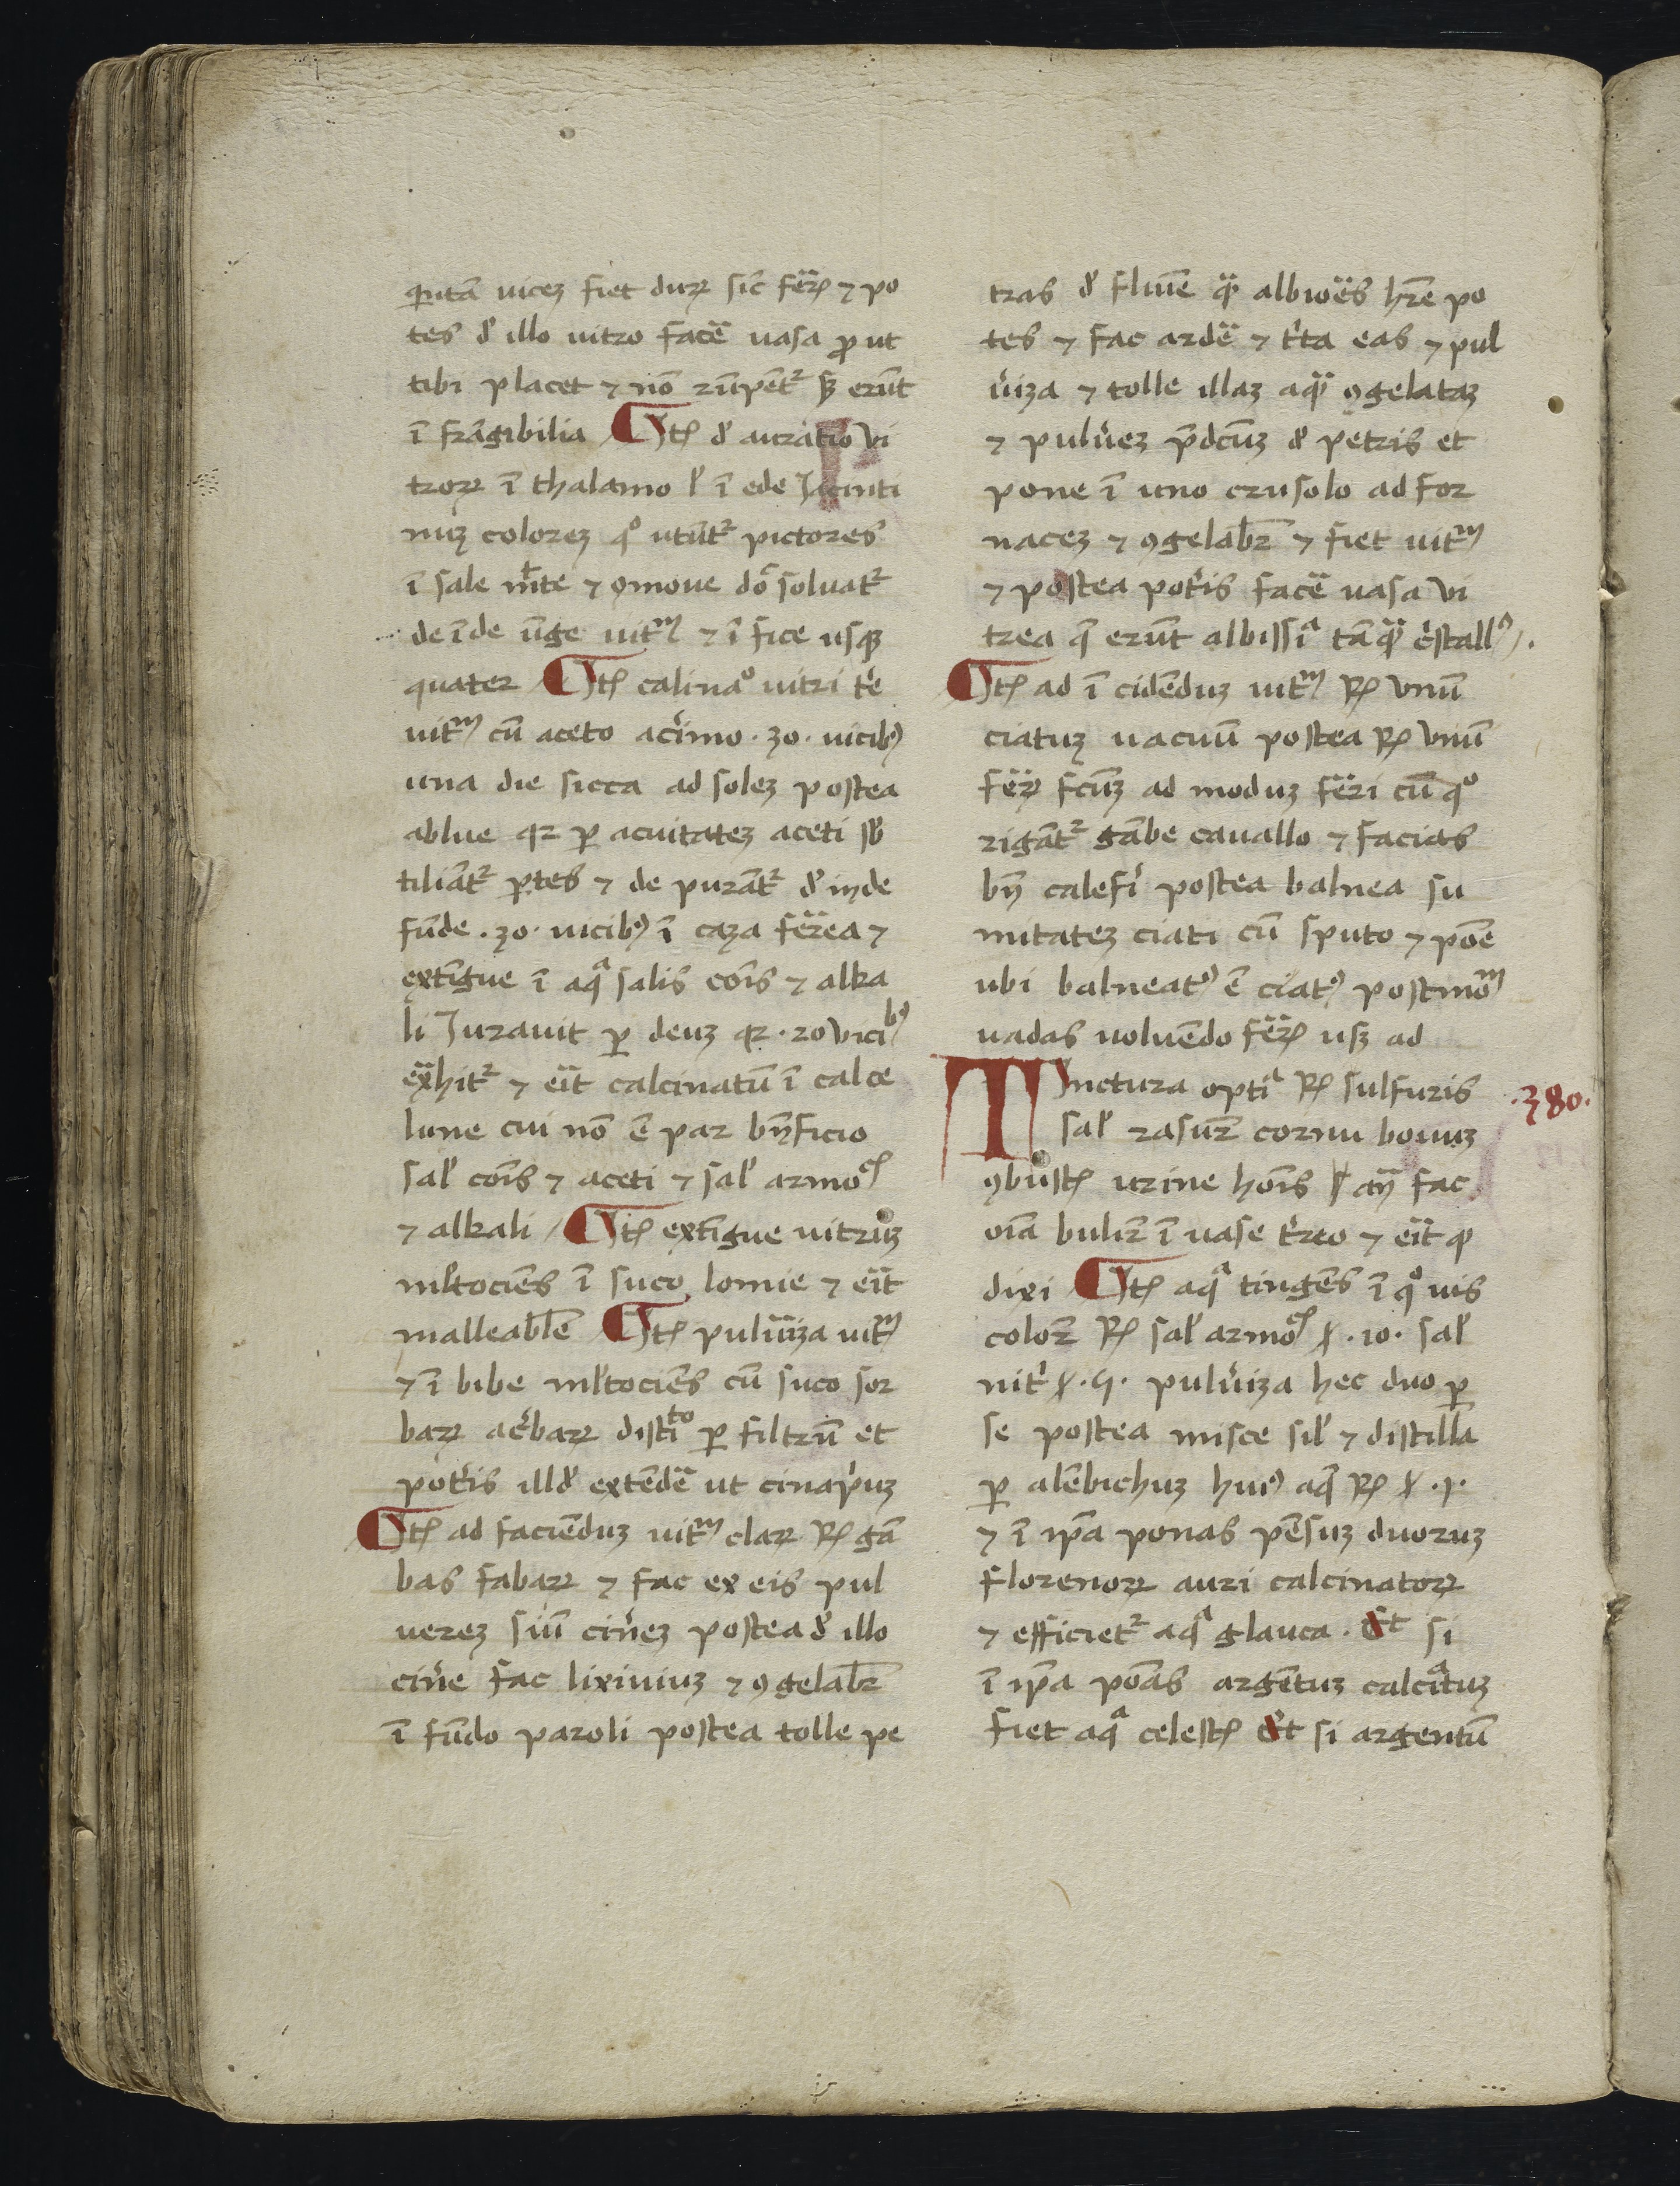 quītā uicez fiet durꝝ sic̄ fer̄ꝝ ⁊ po
tes d̕ illo uitro facē uasa ꝓ ut
tibi placet ⁊ nō rūpēt᷑ sꝫ erūt
ī frāgibilia ¶ Itꝫ d̕ auratiō vi
troꝝ ī thalamo l̕ ī ede Jacinti
nuz colorez qͦ utūt᷑ pictores
ī sale mīte ⁊ ꝯmoue dōͨ soluat᷑
de īde ūge uitͫ ⁊ ī fice usqꝫ
quater ¶ Itꝫ calinaͦ uitri t̕e
uitͫ cū aceto ac̕imo · 30 · uicibꝰ
una die sicca ad solez postea
ablue qꝛ ꝑ acuitatez aceti sb̕
tiliāt᷑ ꝑtes ⁊ de purāt᷑ d̕ īde
fūde · 30 · uicibꝰ ī caza fer̄ea ⁊
extīgue ī aqͣ salis cōis ⁊ alka
li Jurauit ꝑ deuz qꝛ · 20 vicibꝰ
exͣhit᷑ ⁊ eīt calcinatū ī calce
lune cui nō ē par bn̄ficio
sal̕ cōis ⁊ aceti ⁊ sal̕ armoͨ
⁊ alkali / ¶ Itꝫ extīgue uitruz
ml̕tociēs ī suco lomie ⁊ eīt
malleabl̄e ¶ Itꝫ puluīza uitͫ
⁊ ī bibe ml̕tociēs cū suco sor
baꝝ ac̕baꝝ distīᵗᵒ ꝑ filtrū et
pot̕is illd̕ extēdē ut cinap̕uz
¶ Itꝫ ad faciēduz uitͫ claꝝ ℞ gā
bas fabaꝝ ⁊ fac ex eis pul
uerez siuū cin̕ez postea d̕ illo
cin̕e fac lixiuiuz ⁊ ꝯgelab̄r
ī fūdo paroli postea tolle pe
tras d̕ fluīe qͣ albiōēs hr̄e po
tes ⁊ fac ardē ⁊ t̕ta eas ⁊ pul
u̕iza ⁊ tolle illaz aqͣ ꝯgelataz
⁊ pulu̕ez p̄dcūz d̕ petris et
pone ī uno crusolo ad for
nacez ⁊ ꝯgelab̄r ⁊ fiet uitͫ
⁊ postea pot̕is facē uasa vi
trea q̄ erūt albissīͣ tāqͣ c̕stallꝰ.
¶ Itꝫ ad ī cidēduz uitͫ ℞ vnū
ciatuz uacuū postea ℞ vnū
fer̄ꝝ fcūz ad moduz fer̄i cū qͦ
rigāt᷑ gābe cauallo ⁊ facias
bn̄ calefi̕ postea balnea su
mitatez ciati cū sputo ⁊ pōe
ubi balneatꝰ ē ciatꝰ postmoͫ
uadas uoluēdo fer̄ꝝ usꝫ ad
Tinctura optīͣ ℞ sulfuris
sal̕ rasur̄ cornu bouuz
ꝯbustꝫ urine hoīs an̄ fac
oīa bulir̄ ī uase t̕reo ⁊ eīt qͥ
dixi ¶ Itꝫ aqͣ tingēs ī qͦ uis
color̄ ℞ sal̕ armoͨ · 10 · sal̕
nit̕ · 9 · pulu̕iza hec duo ꝑ
se postea misce sil̕ ⁊ distilla
ꝑ alēbichuz huiꝰ aq̄ ℞ · 1 ·
⁊ ī ip̄a ponas pēsuz duoruz
florenoꝝ auri calcinatoꝝ
⁊ efficiet᷑ aqͣ glauca . Et si
ī ip̄a pōas argētuz calcīatuz
fiet aqͣ celestꝫ Et si argentū
·380·